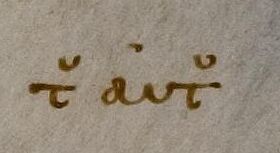 τ̆ αὐτ̆